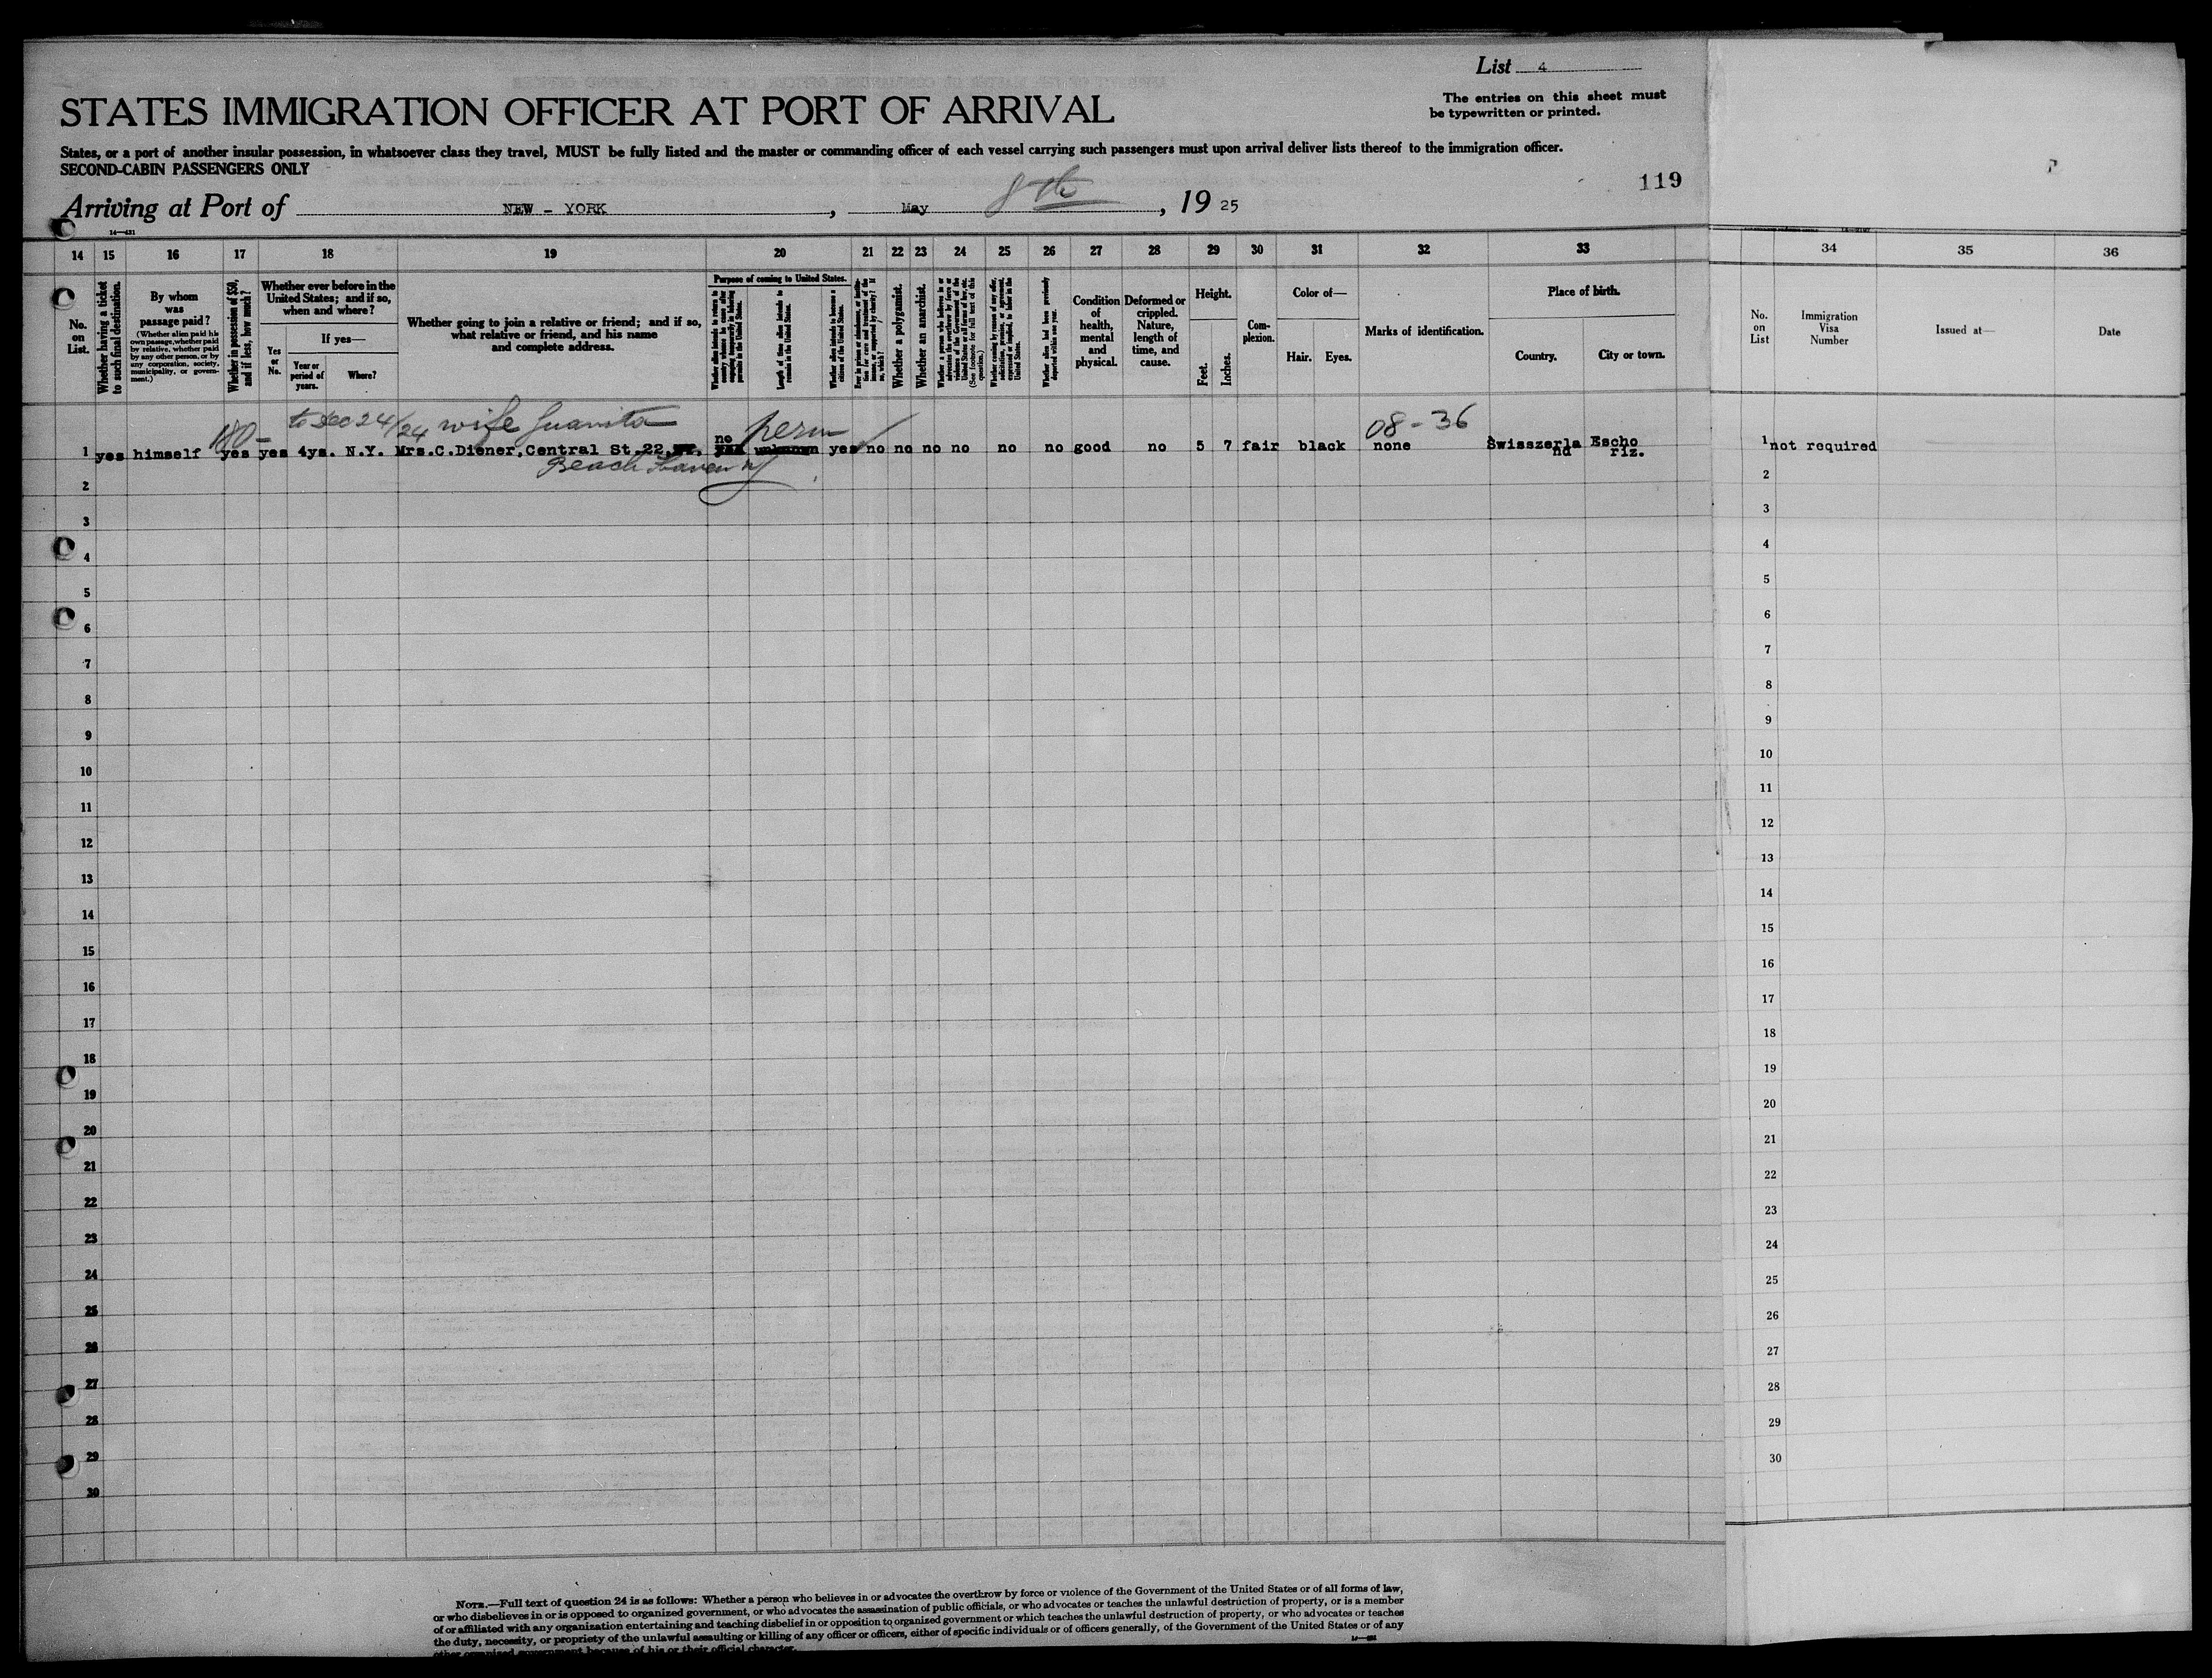 List 4
The entries on this sheet must
be typewritten or printed.
STATES IMMIGRATION OFFICER AT PORT OF ARRIVAL
States, or a port of another insular possession, in whatsoever class they travel, MUST be fully listed and the master or commanding officer of each vessel carrying such passengers must upon arrival deliver lists thereof to the immigration officer.
SECOND-CABIN PASSENGERS ONLY
119
Arriving at Port of NEW - YORK, May 8th, 1925
14—431
14 15 16 17 18 19 20 21 22 23 24 25 26 27 28 29 30 31 32 33 34 35 36
No. on List.
Whether having a ticket to such final destination.
By whom was passage paid?
(Whether alien paid his own passage, whether paid by relative, whether paid by any other person, or by any corporation, society, municipality, or government.)
Whether in possession of $50, and if less, how much?
Whether ever before in the United States; and if so, when and where?
Yes or No.
If yes—
Year or period of years.
Where?
Whether going to join a relative or friend; and if so, what relative or friend, and his name and complete address.
Purpose of coming to United States.
Length of time alien intends to remain in the United States.
Whether alien intends to become a citizen of the United States.
Whether a polygamist.
Whether an anarchist.
Whether alien had been previously deported within one year.
Condition of health, mental and physical.
Deformed or crippled. Nature, length of time, and cause.
Height.
Feet.
Inches.
Complexion.
Color of—
Hair.
Eyes.
Marks of identification.
Place of birth.
Country.
City or town.
No. on List
Immigration Visa Number
Issued at—
Date
180- to Dec 24/24 wife Juanita no perm 08-36
1 yes himself yes yes 4ys. N.Y. Mrs.C.Diener,Central St.22, yes unknown yes no no no no no no good no 5 7 fair black none Swisszerla Escho 1 not required
Beach Haven NJ nd riz.
2 2
3 3
4 4
5 5
6 6
7 7
8 8
9 9
10 10
11 11
12 12
13 13
14 14
15 15
16 16
17 17
18 18
19 19
20 20
21 21
22 22
23 23
24 24
25 25
26 26
27 27
28 28
29 29
30 30
NOTE.—Full text of question 24 is as follows: Whether a person who believes in or advocates the overthrow by force or violence of the Government of the United States or of all forms of law,
or who disbelieves in or is opposed to organized government, or who advocates the assassination of public officials, or who advocates or teaches the unlawful destruction of property, or is a member
of or affiliated with any organization entertaining and teaching disbelief in or opposition to organized government or which teaches the unlawful destruction of property, or who advocates or teaches
the duty, necessity, or propriety of the unlawful assaulting or killing of any officer or officers, either of specific individuals or of officers generally, of the Government of the United States or of any
other organized government because of his or their official character.